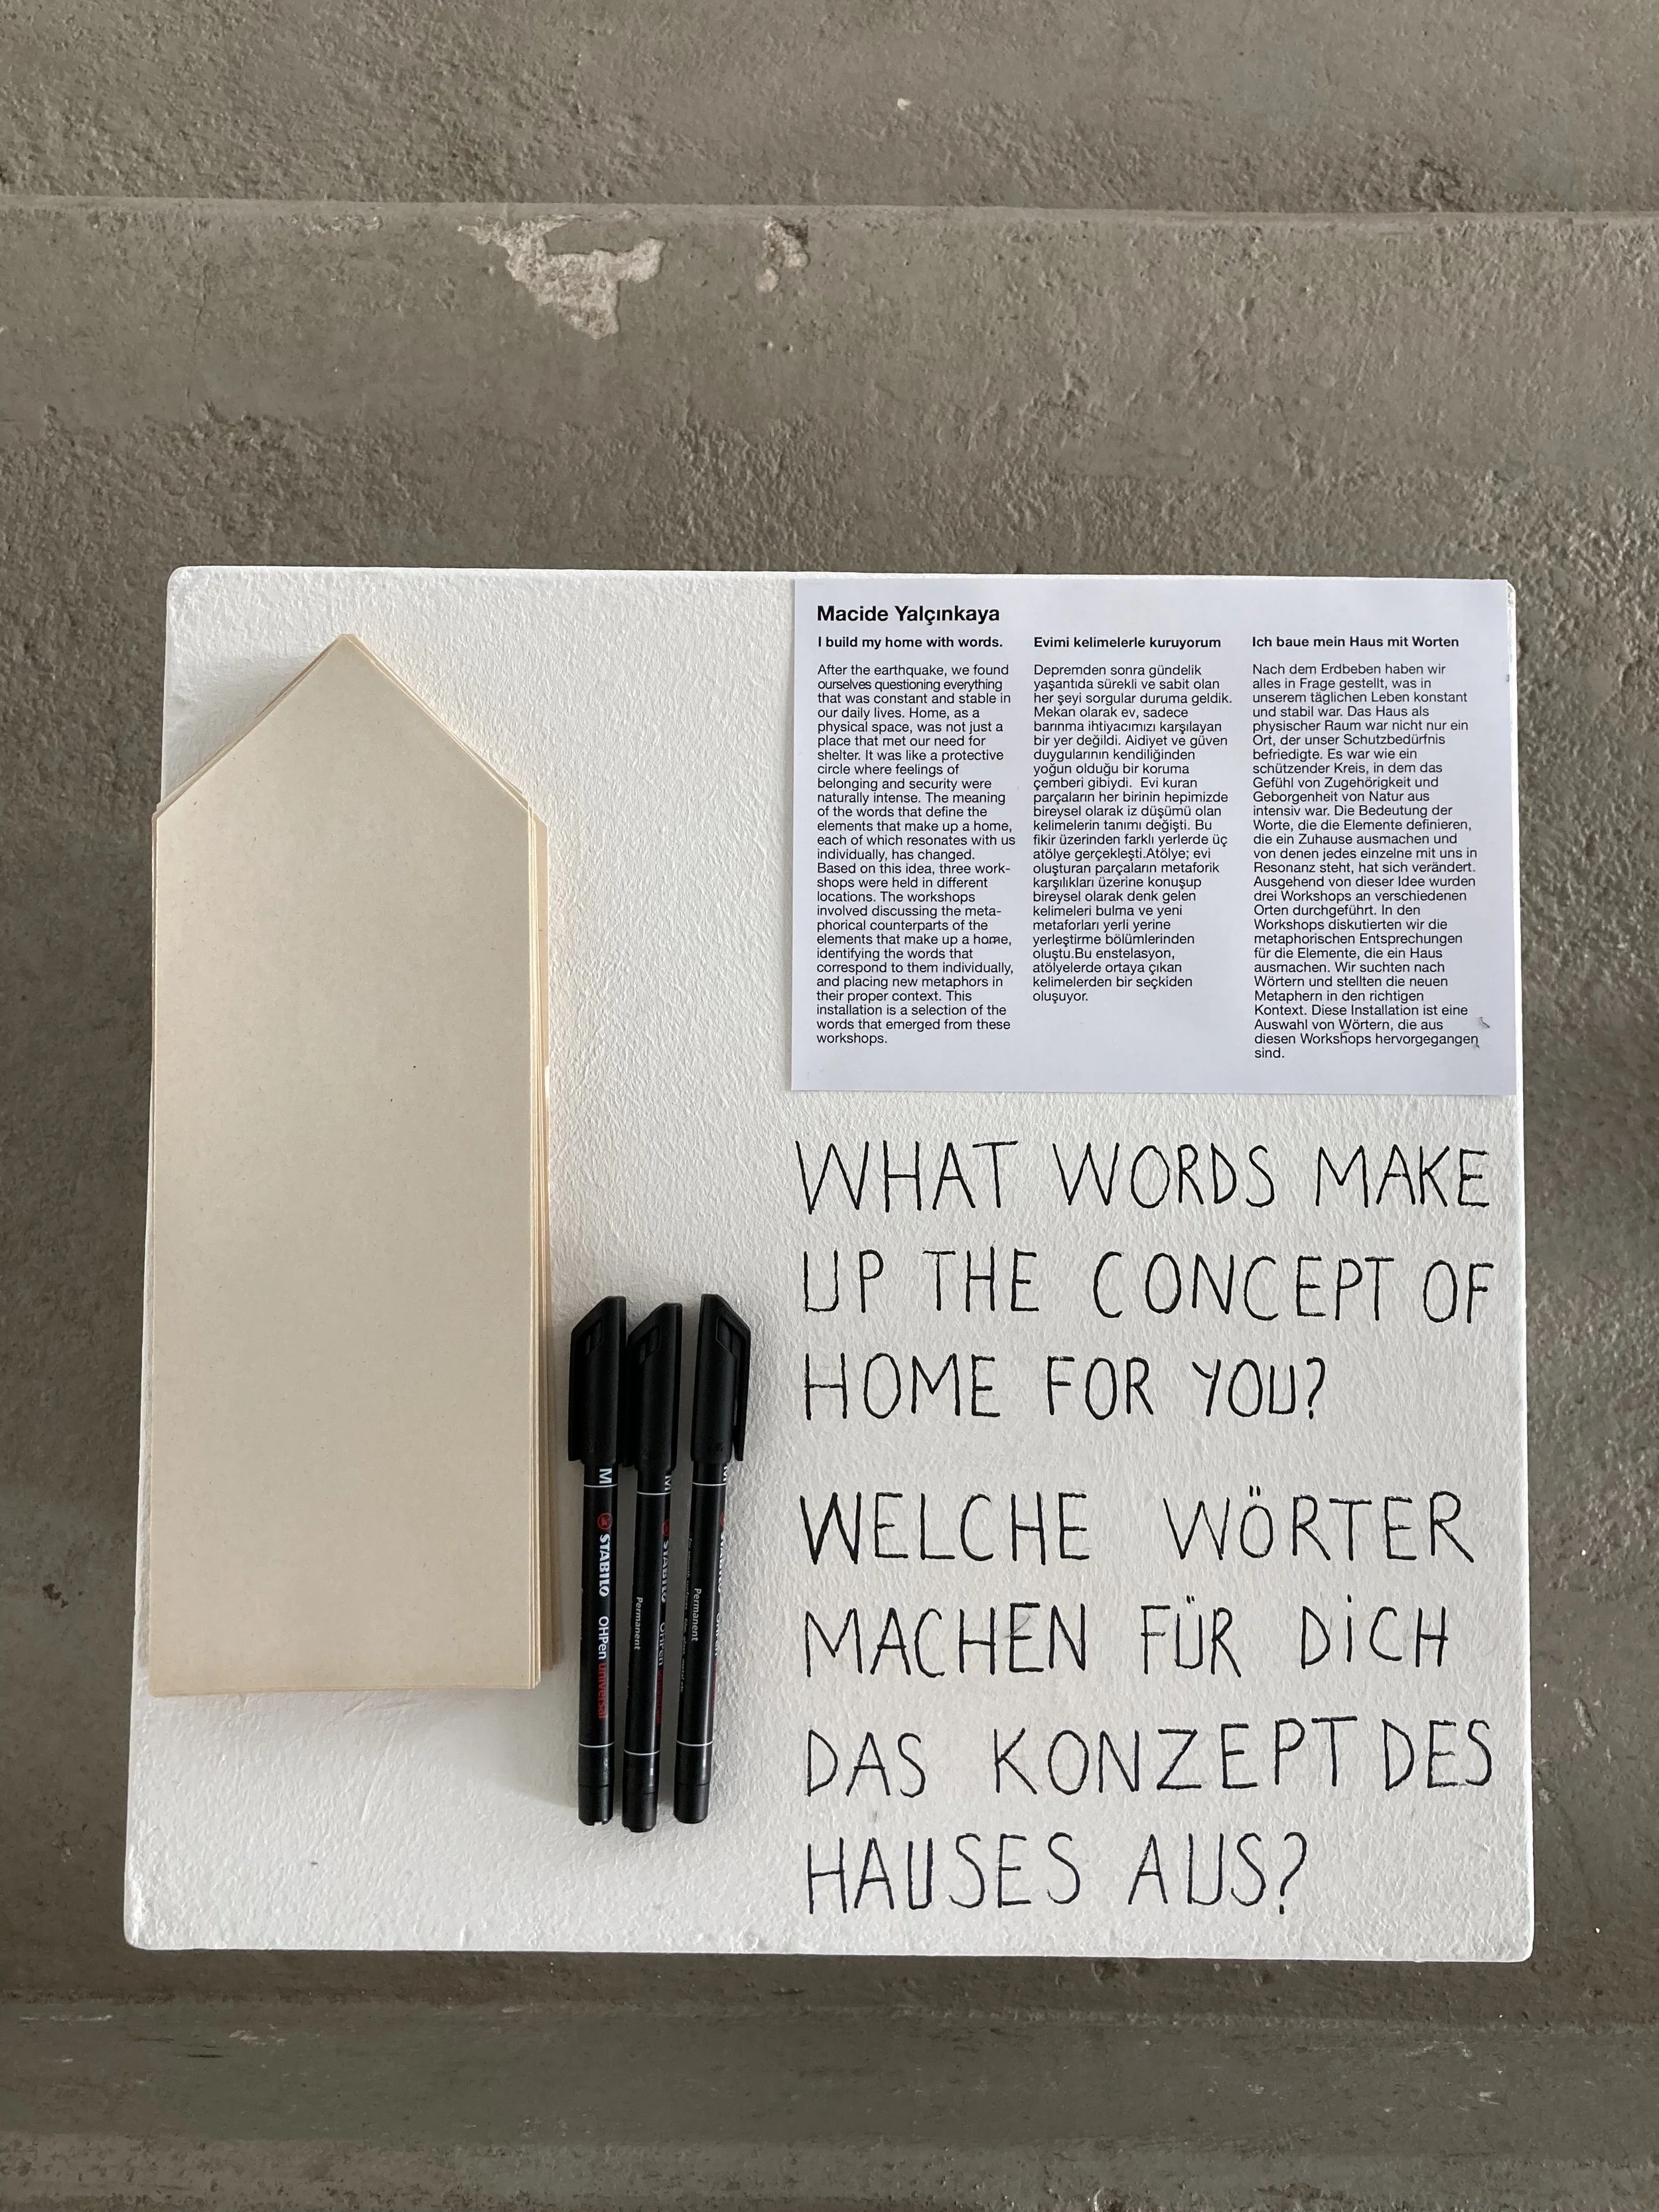 Macide Yalçınkaya
I build my home with words.
After the earthquake, we found
ourselves questioning everything
that was constant and stable in
our daily lives. Home, as a
physical space, was not just a
place that met our need for
shelter. It was like a protective
circle where feelings of
belonging and security were
naturally intense. The meaning
of the words that define the
elements that make up a home,
each of which resonates with us
individually, has changed.
Based on this idea, three work-
shops were held in different
locations. The workshops
involved discussing the meta-
phorical counterparts of the
elements that make up a home,
identifying the words that
correspond to them individually,
and placing new metaphors in
their proper context. This
installation is a selection of the
words that emerged from these
workshops.
Evimi kelimelerle kuruyorum
Depremden sonra gündelik
yaşantıda sürekli ve sabit olan
her şeyi sorgular duruma geldik.
Mekan olarak ev, sadece
barınma ihtiyacımızı karşılayan
bir yer değildi. Aidiyet ve güven
duygularının kendiliğinden
yoğun olduğu bir koruma
çemberi gibiydi. Evi kuran
parçaların her birinin hepimizde
bireysel olarak iz düşümü olan
kelimelerin tanımı değişti. Bu
fikir üzerinden farklı yerlerde üç
atölye gerçekleşti.Atölye; evi
oluşturan parçaların metaforik
karşılıkları üzerine konuşup
bireysel olarak denk gelen
kelimeleri bulma ve yeni
metaforları yerli yerine
yerleştirme bölümlerinden
oluştu.Bu enstelasyon,
atölyelerde ortaya çıkan
kelimelerden bir seçkiden
oluşuyor.
Ich baue mein Haus mit Worten
Nach dem Erdbeben haben wir
alles in Frage gestellt, was in
unserem täglichen Leben konstant
und stabil war. Das Haus als
physischer Raum war nicht nur ein
Ort, der unser Schutzbedürfnis
befriedigte. Es war wie ein
schützender Kreis, in dem das
Gefühl von Zugehörigkeit und
Geborgenheit von Natur aus
intensiv war. Die Bedeutung der
Worte, die die Elemente definieren,
die ein Zuhause ausmachen und
von denen jedes einzelne mit uns in
Resonanz steht, hat sich verändert.
Ausgehend von dieser Idee wurden
drei Workshops an verschiedenen
Orten durchgeführt. In den
Workshops diskutierten wir die
metaphorischen Entsprechungen
für die Elemente, die ein Haus
ausmachen. Wir suchten nach
Wörtern und stellten die neuen
Metaphern in den richtigen
Kontext. Diese Installation ist eine
Auswahl von Wörtern, die aus
diesen Workshops hervorgegangen
sind.
WHAT WORDS MAKE
UP THE CONCEPT OF
HOME FOR YOU?
WELCHE WÖRTER
MACHEN FÜR DiCH
DAS KONZEPT DES
HAUSES AUS?
M STABILO OHPen universal
M STABILO OHPen
Permanent
Permanent